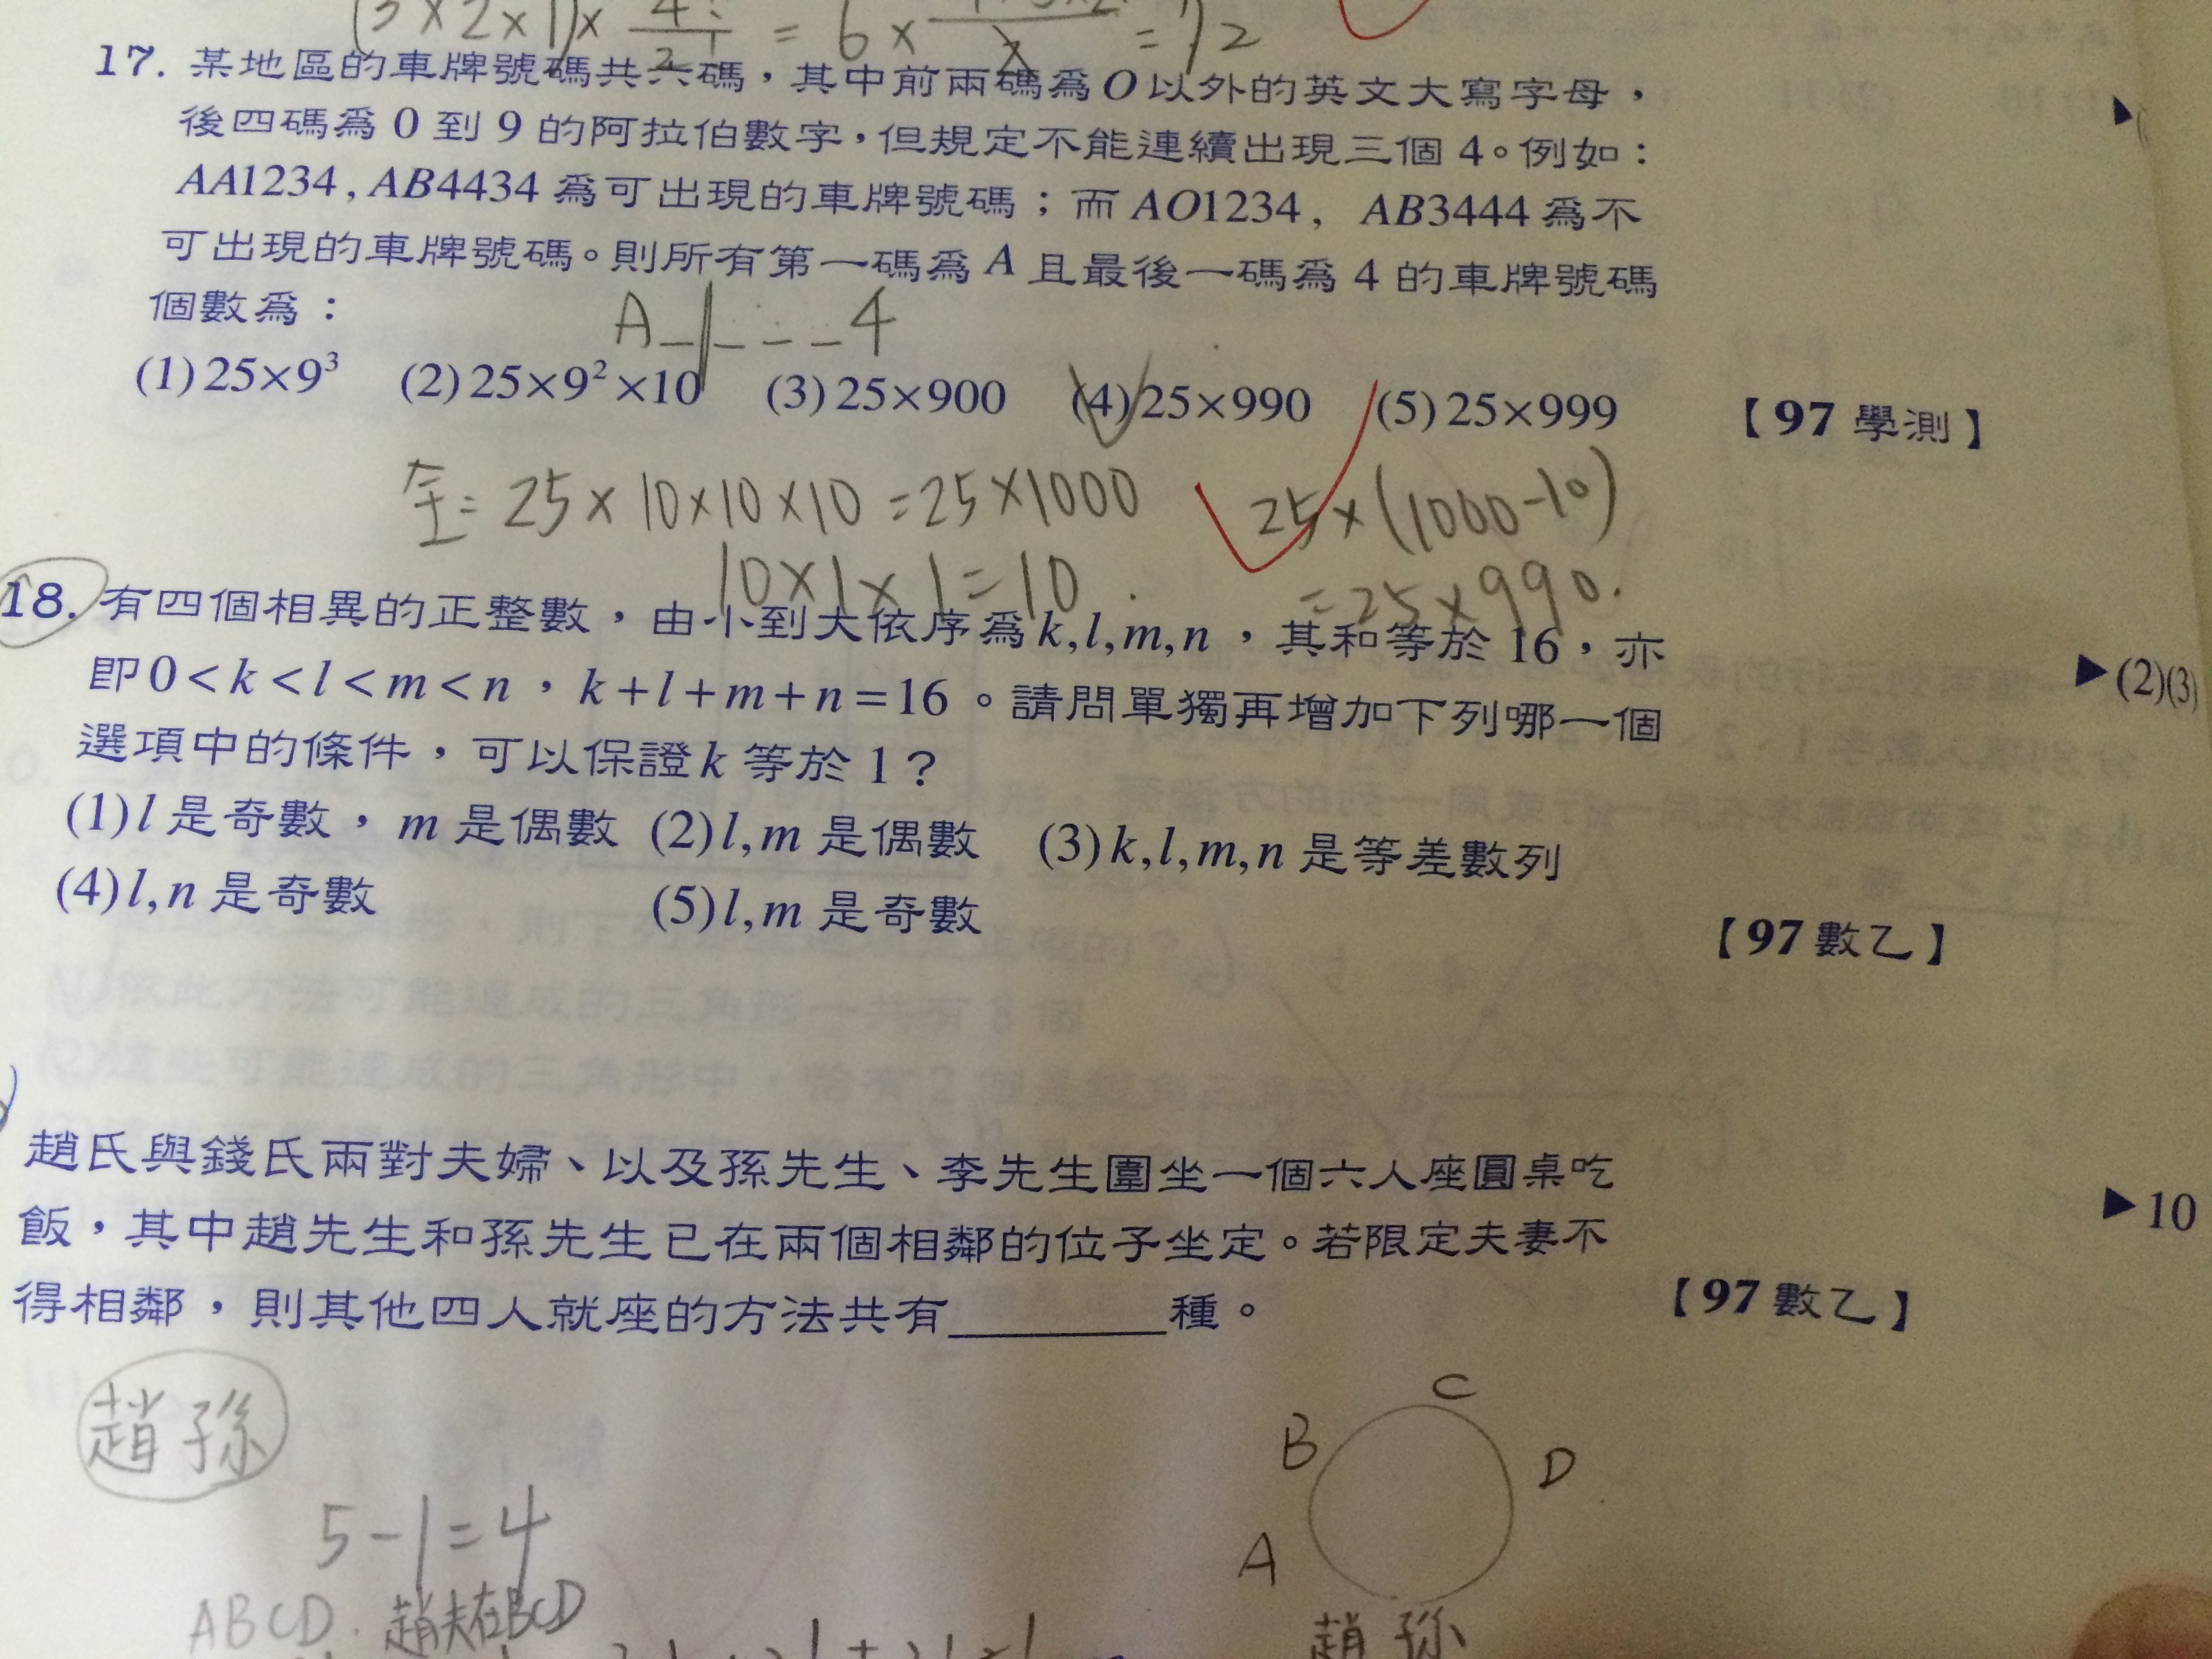 (3×2×1)× 4!/2! = 6× = 72
17. 某地區的車牌號碼共六碼，其中前兩碼為O以外的英文大寫字母，
後四碼為 0 到 9 的阿拉伯數字，但規定不能連續出現三個 4。例如：
AA1234, AB4434 為可出現的車牌號碼；而 AO1234, AB3444 為不
可出現的車牌號碼。則所有第一碼為 A 且最後一碼為 4 的車牌號碼
個數為：
A _ | _ _ _ 4
(1) 25×9³ (2) 25×9²×10 (3) 25×900 (4) 25×990 (5) 25×999 【97 學測】
全= 25×10×10×10 = 25×1000
25×(1000-10)
10×1×1=10
=25×990.
18. 有四個相異的正整數，由小到大依序為k,l,m,n，其和等於 16，亦
即0<k<l<m<n，k+l+m+n=16。請問單獨再增加下列哪一個
▶(2)(3)
選項中的條件，可以保證k 等於 1？
(1) l 是奇數，m 是偶數 (2) l,m 是偶數 (3) k,l,m,n 是等差數列
(4) l,n 是奇數 (5) l,m 是奇數
【97 數乙】
趙氏與錢氏兩對夫婦、以及孫先生、李先生圍坐一個六人座圓桌吃
飯，其中趙先生和孫先生已在兩個相鄰的位子坐定。若限定夫妻不
▶10
得相鄰，則其他四人就座的方法共有________種。
【97 數乙】
趙 孫
5-1=4
ABCD. 趙夫在BCD
C
B
D
A
趙 孫